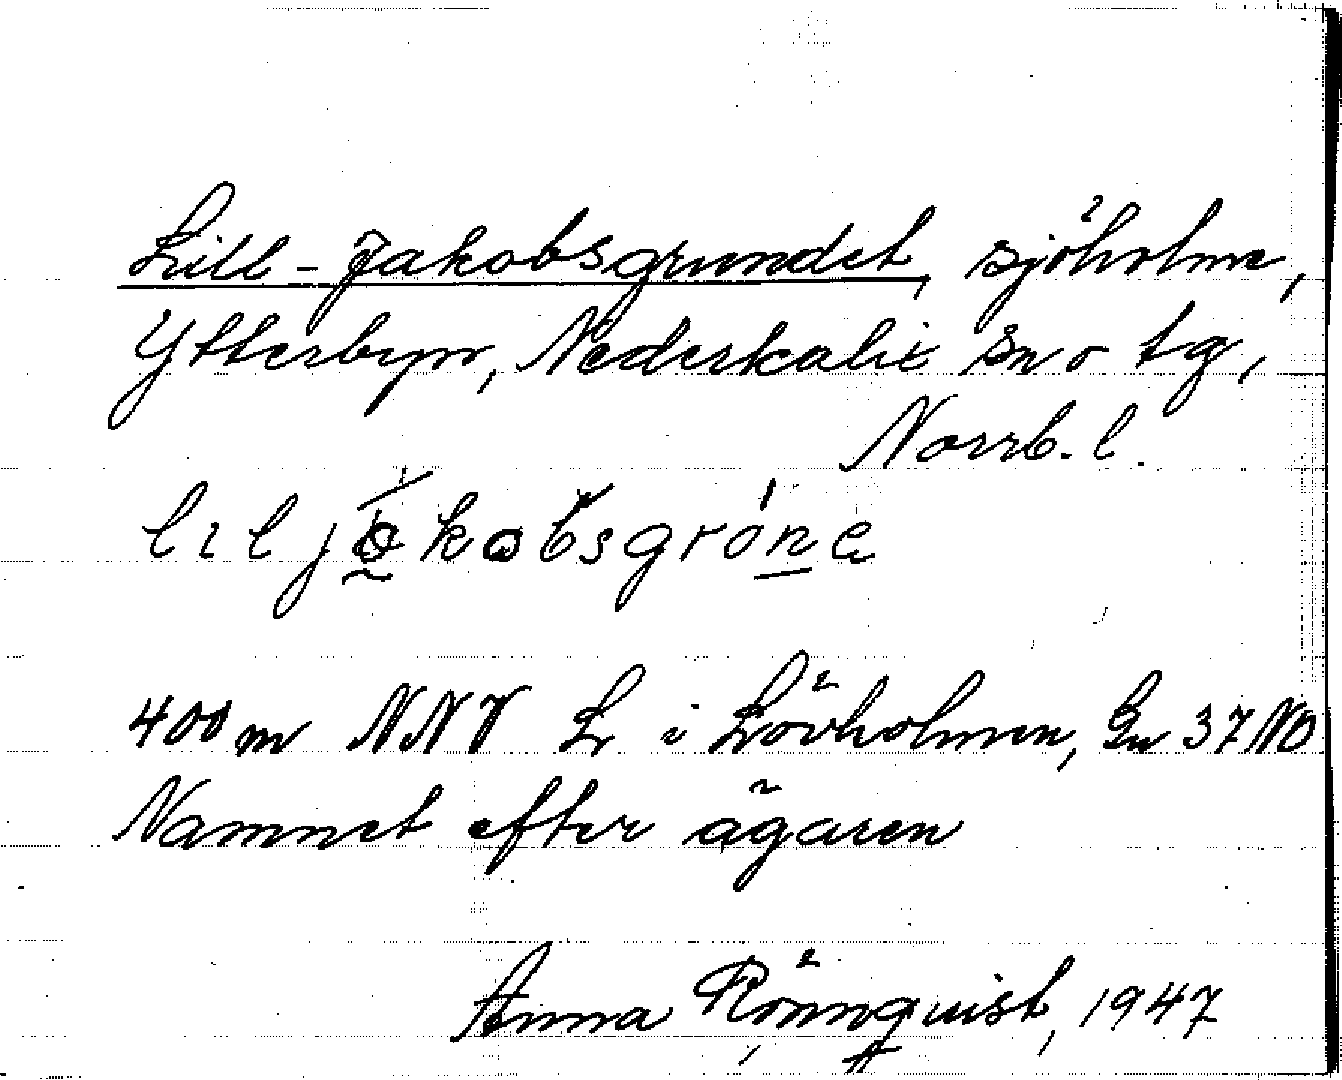 Lill-Jakobsgrundet, sjöholme,
Ytterbyn, Nederkalix sn o tg,
Norrb. l.
400 m NNV L i Lövholmen, Gn 37 NO
Namnet efter ägaren
Anna Rönnquist, 1947